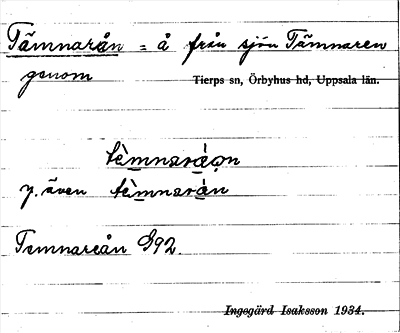 Tämnarån = å från sjön Tämnaren
genom Tierps sn, Örbyhus hd, Uppsala län.
tèmnaráọn
y. även tèmnarán
Temnareån S92.
Ingegärd Isaksson 1934.